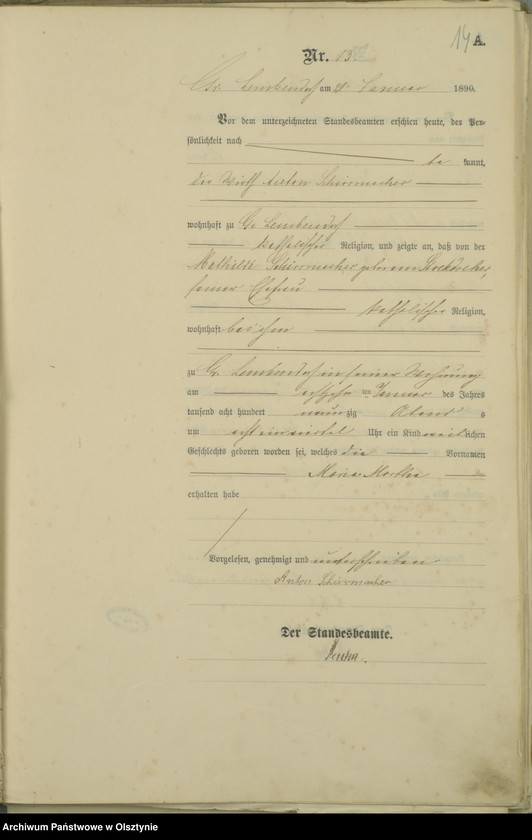 14 A.
Nr. 13
Gr. Lemkendorf am Januar 1890.
Vor dem unterzeichneten Standesbeamten erschien heute, der Per-
sönlichkeit nach
be kannt,
der Wirth Anton Schirrmacher
wohnhaft zu Gr. Lemkendorf
katholischer Religion, und zeigte an, daß von der
Mathilde Schirrmacher geborenen
seiner Ehefrau
katholischer Religion,
wohnhaft bei ihm
zu Gr. Lemkendorf in seiner Wohnung
am ten Januar des Jahres
tausend acht hundert neunzig Abends
um acht ein viertel Uhr ein Kind weiblichen
Geschlechts geboren worden sei, welches die Vornamen
Maria Martha
erhalten habe
Vorgelesen, genehmigt und unterschrieben
Anton Schirrmacher
Der Standesbeamte.
Archiwum Państwowe w Olsztynie